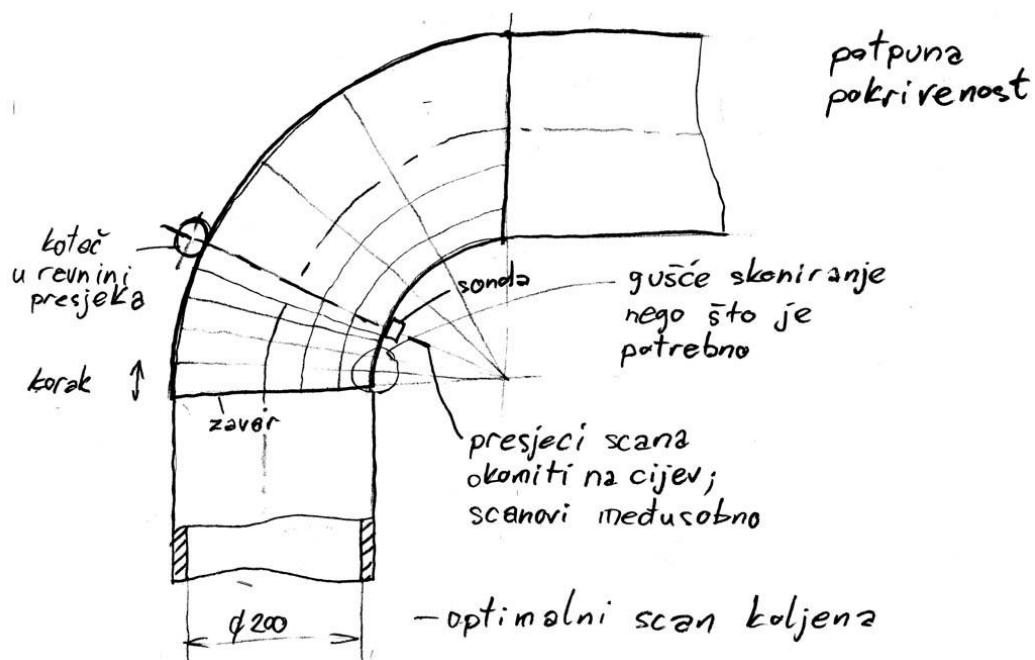 potpuna
pokrivenost
kotač
u ravnini
presjeka
sonda
gušće skaniranje
nego što je
potrebno
korak
zavar
presjeci scana
okomiti na cijev;
scanovi međusobno
⌀200
-optimalni scan koljena